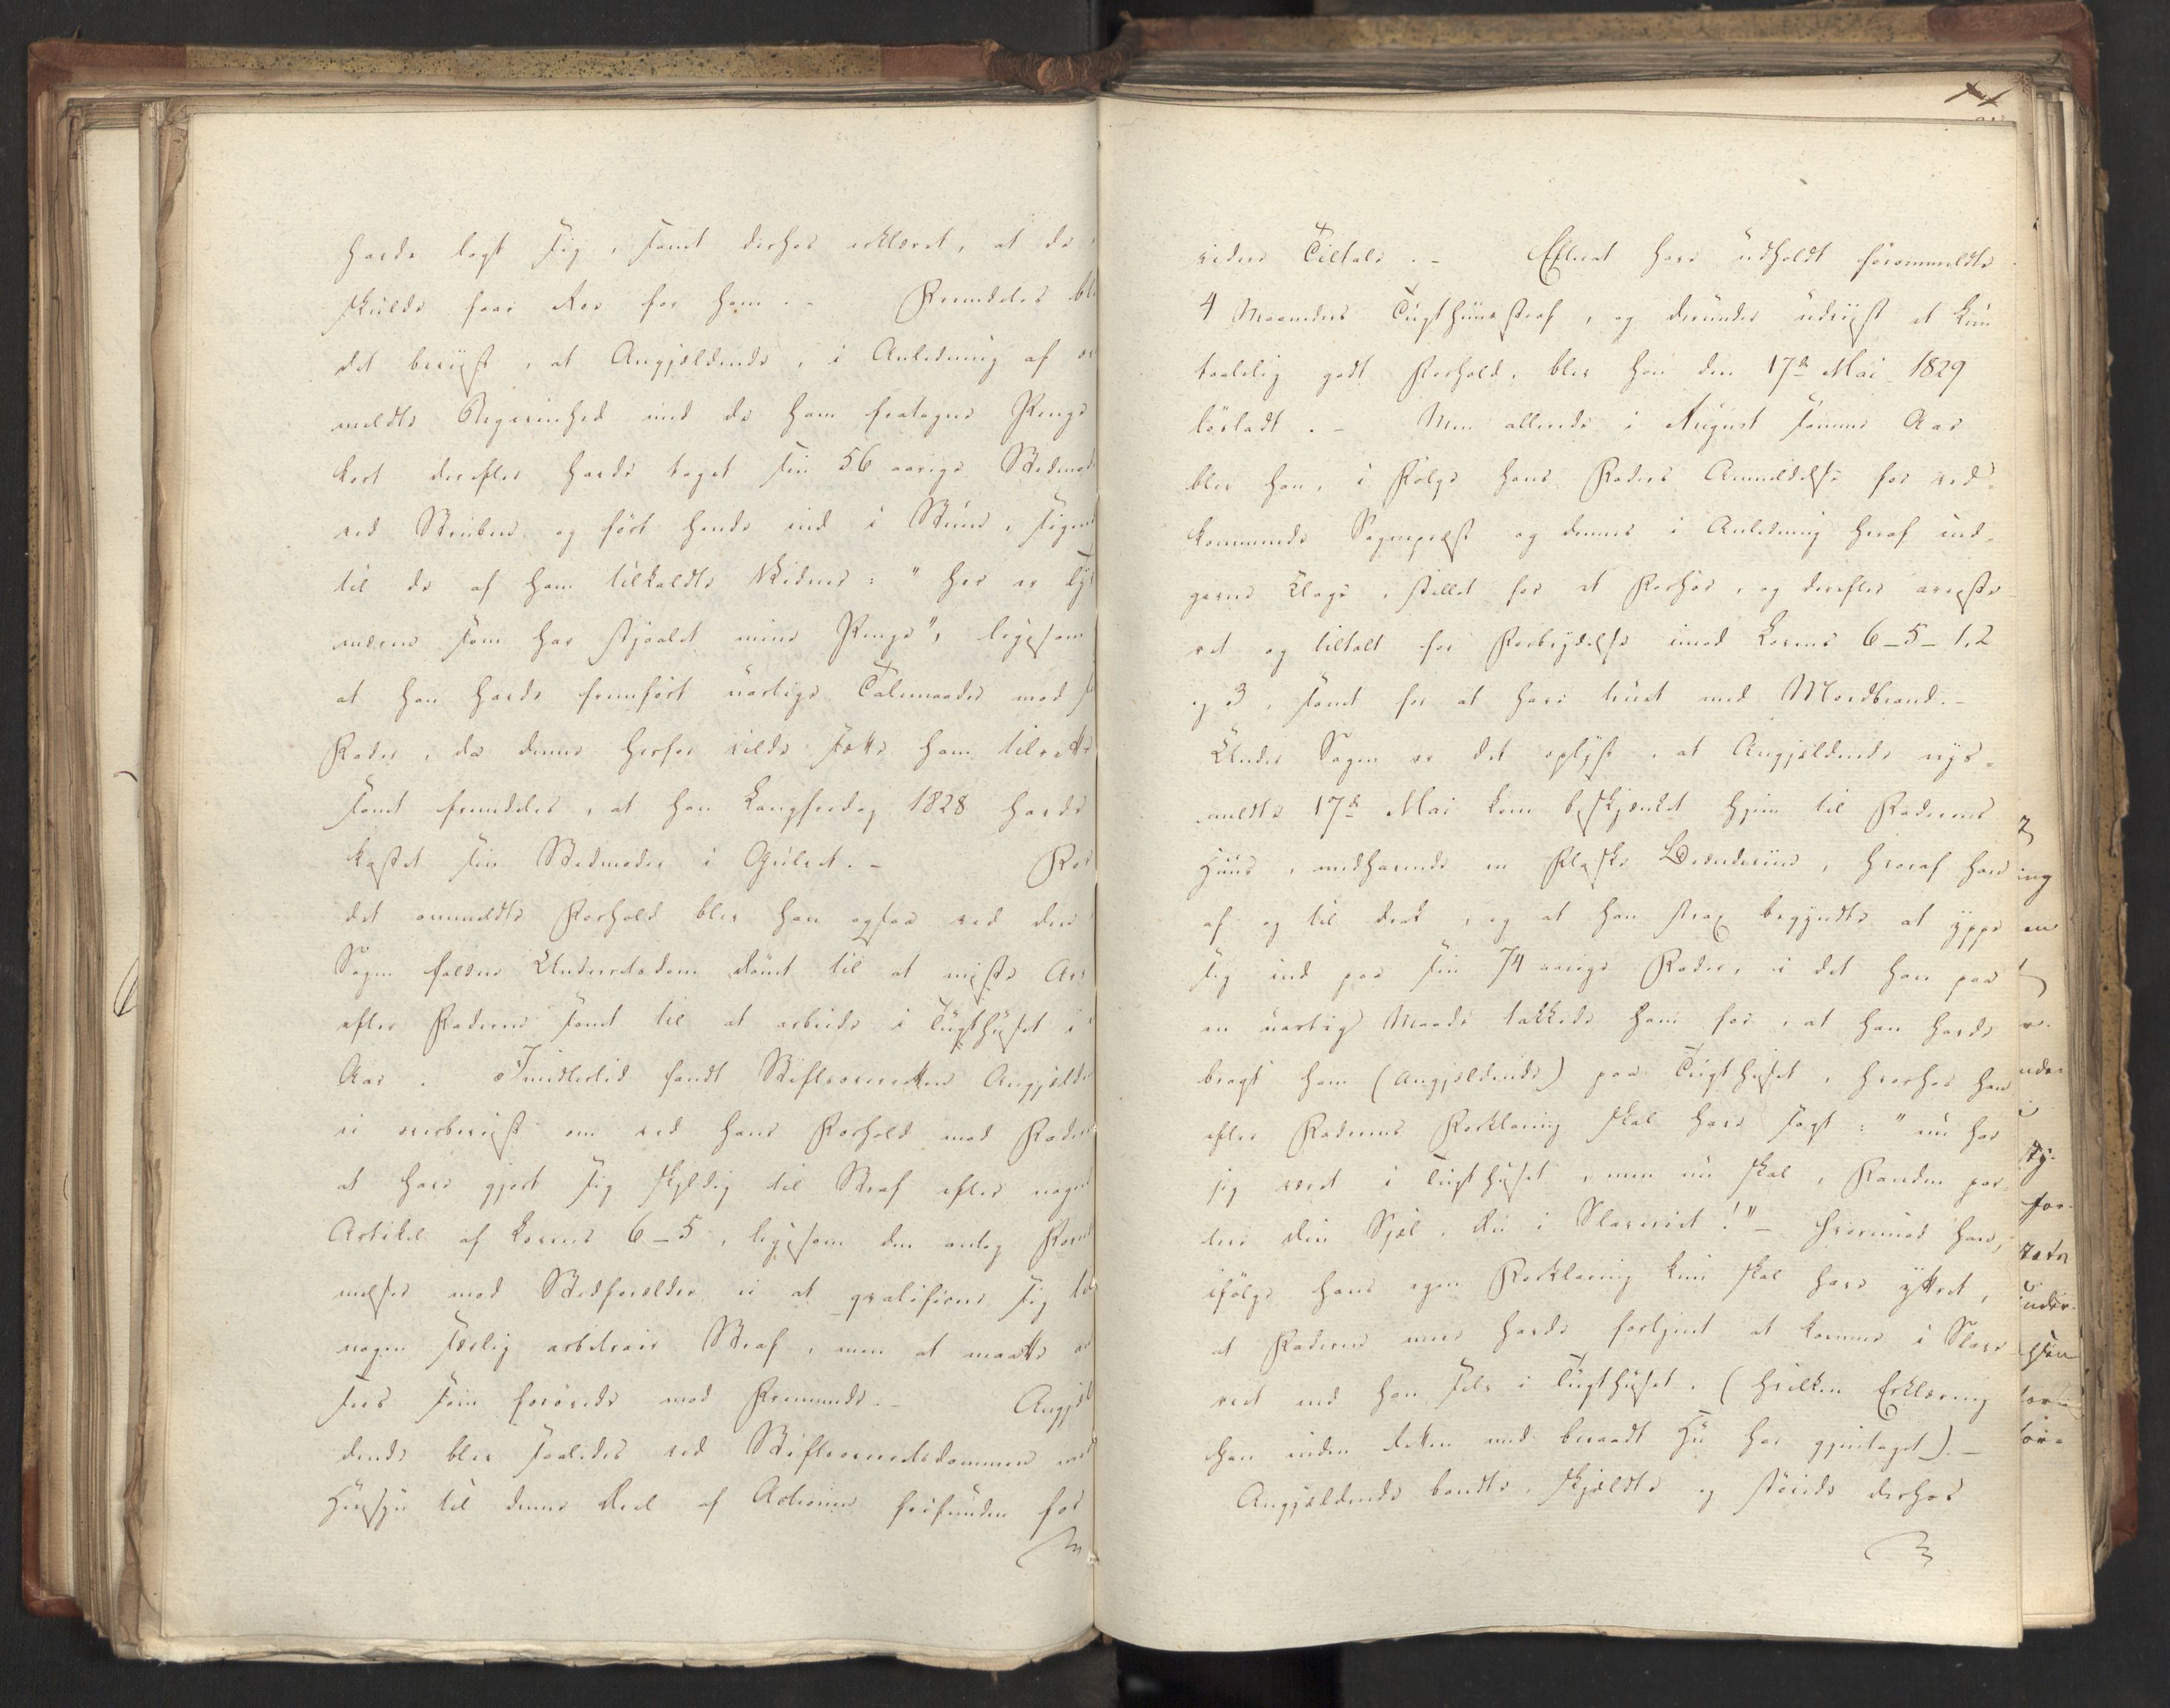 havde lagt sig, samt derhos erklæret, at de
skulde faae Ros for ham. – Fremdeles ble
det beviist, at Angjældende, i Anledning af
meldte Begivenhed med de ham fratagne Penge
kort derefter havde taget sin 56 aarige Stedmod
ved Struben og ført hende ind i Stuen, sigen
til de af ham tilkaldte Vidner: "her er Ty
nden som har stjaalet mine Penge", ligesom
at han havde fremført uartige Talemaader mod s
Fader, da denne herfor vilde sætte ham tilrette
samt fremdeles, at han Langfredag 1828 havde
kastet sin Stedmoder i Gulvet. – For
det ommeldte Forhold blev han ogsaa ved den
Sagen faldne Underretsdom dømt til at miste Arv
efter Faderen samt til at arbeide i Tugthuset i
Aar. Imidlertid fandt Stiftsoverretten Angjælde
ei overbeviist om ved hans Forhold mod Fader
at have gjort sig skyldig til Straf efter nogen
Artikel af Lovens 6–5, ligesom den antog Forn
melser mod Stedforældre ei at qvalificere sig til
nogen særlig arbitrair Straf, men at maatte an
sees som forøvede mod Fremmede. – Angjæl
dende blev saaledes ved Stiftsoverretsdommen med
Hensyn til denne Deel af Actionen frifunden for
videre Tiltale. – Efterat have udholdt forommeldte
4 Maaneders Tugthuusstraf, og derunder udviist et kun
taalelig godt Forhold, blev han den 17de Mai 1829
løsladt. – Men allerede i August samme Aar
blev han, i Følge hans Faders Anmeldelse for ved-
kommende Sognepræst og dennes i Anledning heraf ind-
givne Klage, stillet for et Forhør, og derefter arreste-
ret og tiltalt for Forbrydelse imod Lovens 6–5–1, 2
og 3, samt for at have truet med Mordbrand. –
Under Sagen er det oplyst, at Angjældende nys-
meldte 17de Mai kom beskjænket hjem til Faderens
Huus, medhavende en Flaske Brændeviin, hvoraf han
af og til drak, og at han strax begyndte at yppe
sig ind paa sin 74 aarige Fader, i det han paa
en uartig Maade takkede ham for, at han havde
bragt ham (Angjældende) paa Tugthuset, hvorhos han
efter Faderens Forklaring skal have sagt: "nu har
jeg været i Tugthuset, men nu skal, Fanden par-
tere din Sjæl, Du i Slaveriet!" – Hvorimod han,
ifølge hans egen Forklaring kun skal have yttret,
at Faderen mere havde fortjent at komme i Slave
riet end han selv i Tugthuset. (hvilken Erklæring
han inden Retten med beraadt Hu har gjentaget). –
Angjældende bandte, skjældte og støiede derhos